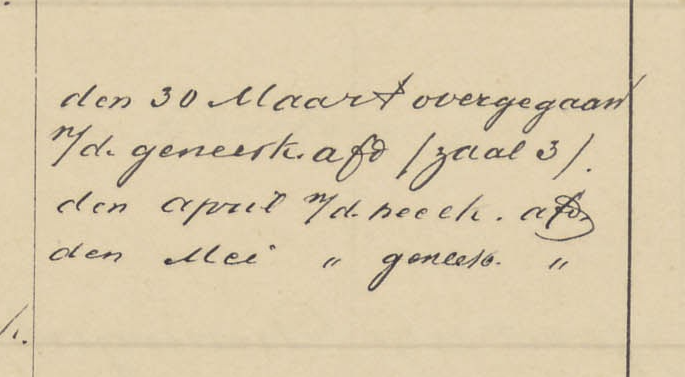 den 30 Maart overgegaan
n/d. geneesk. afd (zaal 3).
den april n/d. heelk. afd.
den Mei " geneesk. "